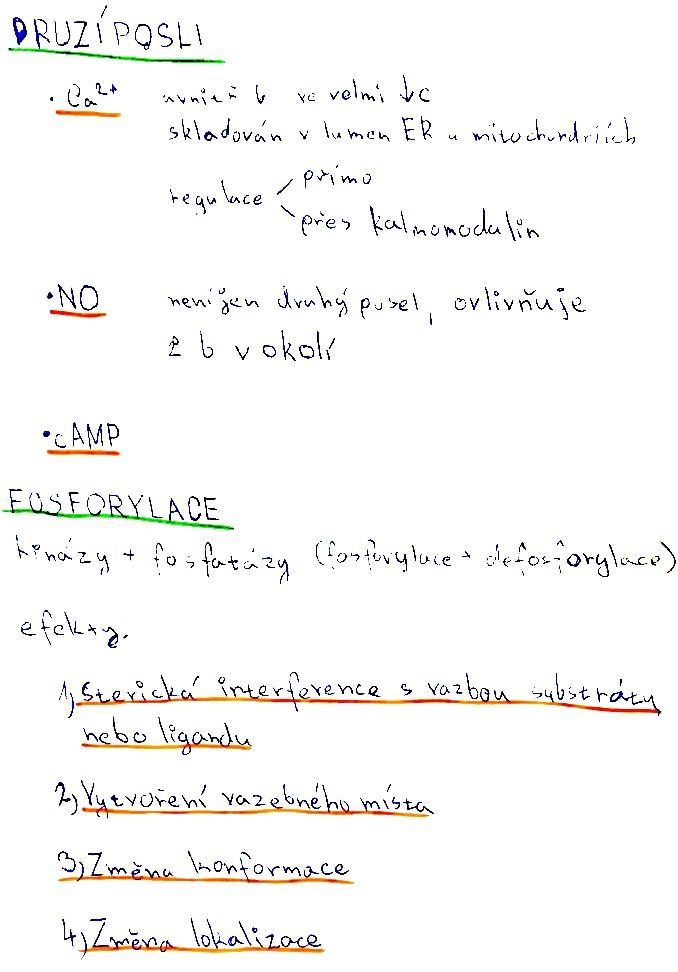 DRUZÍ POSLI
• Ca²⁺ uvnitř b ve velmi ↓c
skladován v lumen ER a mitochondriích
regulace
přímo
přes kalmomodulin
• NO není jen druhý posel, ovlivňuje
2 b v okolí
• cAMP
FOSFORYLACE
kinázy + fosfatázy (fosforylace + defosforylace)
efekty.
1) Sterická interference s vazbou substrátu
nebo ligandu
2) Vytvoření vazebného místa
3) Změna konformace
4) Změna lokalizace